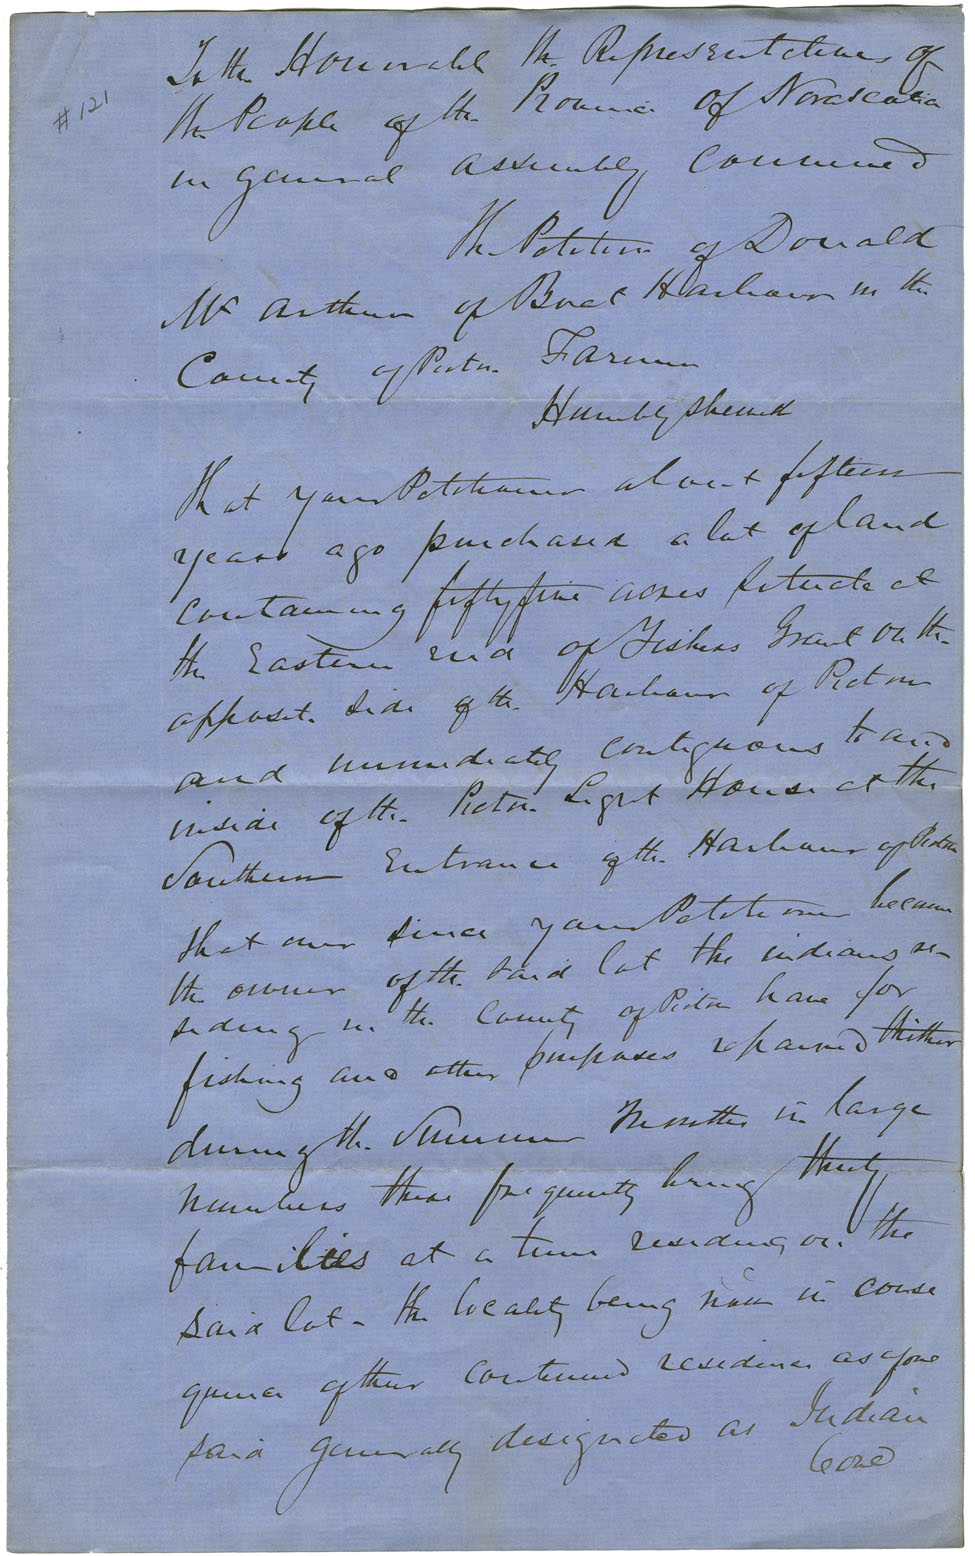 # 121
To the Honorable the Representatives of
the People of the Province of Novascotia
in general assembly convened
The Petition of Donald
Mc Arthur of Boat Harbour in the
County of Pictou Farmer
Humbly sheweth
That your Petitioner about fifteen
years ago purchased a lot of land
containing fifty five acres situate at
the Eastern end of Fishers Grant on the
opposite side of the Harbour of Pictou
and immediately contiguous to and
inside of the Pictou Light House at the
Southern Entrance of the Harbour of Pictou
that ever since your Petitioner became
the owner of the said lot the indians re-
siding in the County of Pictou have for
fishing and other purposes repaired thither
during the Summer Months in large
numbers there frequently being thirty
families at a time residing on the
said lot - the locality being now in conse
quence of their continued residence as afore
said generally designated as Indian
Cove